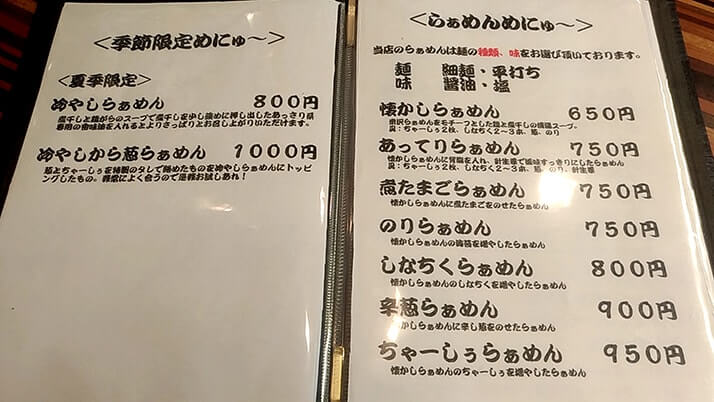 <季節限定めにゅ～>
<夏季限定>
冷やしらぁめん 800円
煮干しと鶏がらのスープで煮干しを少し強めに押し出したあっさり系
専用の香味油を入れるとよりさっぱりとお召し上がりいただけます。
冷やしから葱らぁめん 1000円
葱とちゃーしぅを特製のタレで絡めたものを冷やしらぁめんにトッピ
ングしたもの。非常によく合うので是非お試しあれ!
<らぁめんめにゅ～>
当店のらぁめんは麺の種類、味をお選び頂いております。
麺 細麺・平打ち
味 醤油・塩
懐かしらぁめん 650円
米沢らぁめんをモチーフとした鶏と煮干しの清湯スープ。
具:ちゃーしぅ2枚、しなちく2～3本、葱、のり
あってりらぁめん 750円
懐かしらぁめんに背脂を入れ、針生姜で風味すっきりにしたらぁめん
具:ちゃーしぅ2枚、しなちく2～3本、葱、のり、針生姜
煮たまごらぁめん 750円
懐かしらぁめんに煮たまごをのせたらぁめん
のりらぁめん 750円
懐かしらぁめんの海苔を増やしたらぁめん
しなちくらぁめん 800円
懐かしらぁめんのしなちくを増やしたらぁめん
辛葱らぁめん 900円
懐かしらぁめんに辛し葱をのせたらぁめん
ちゃーしぅらぁめん 950円
懐かしらぁめんのちゃーしぅを増やしたらぁめん